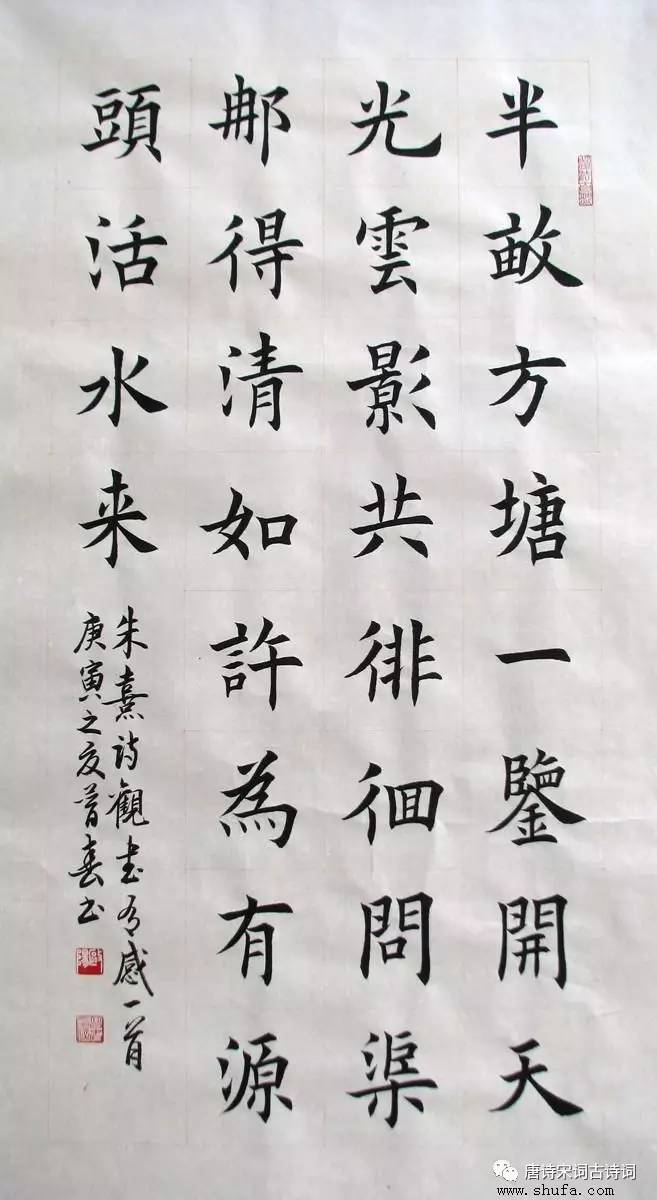 半畝方塘一鑒開天
光雲影共徘徊問渠
那得清如許為有源
頭活水来
朱熹詩觀書有感一首
庚寅之夏
唐诗宋词古诗词
www.shufa.com